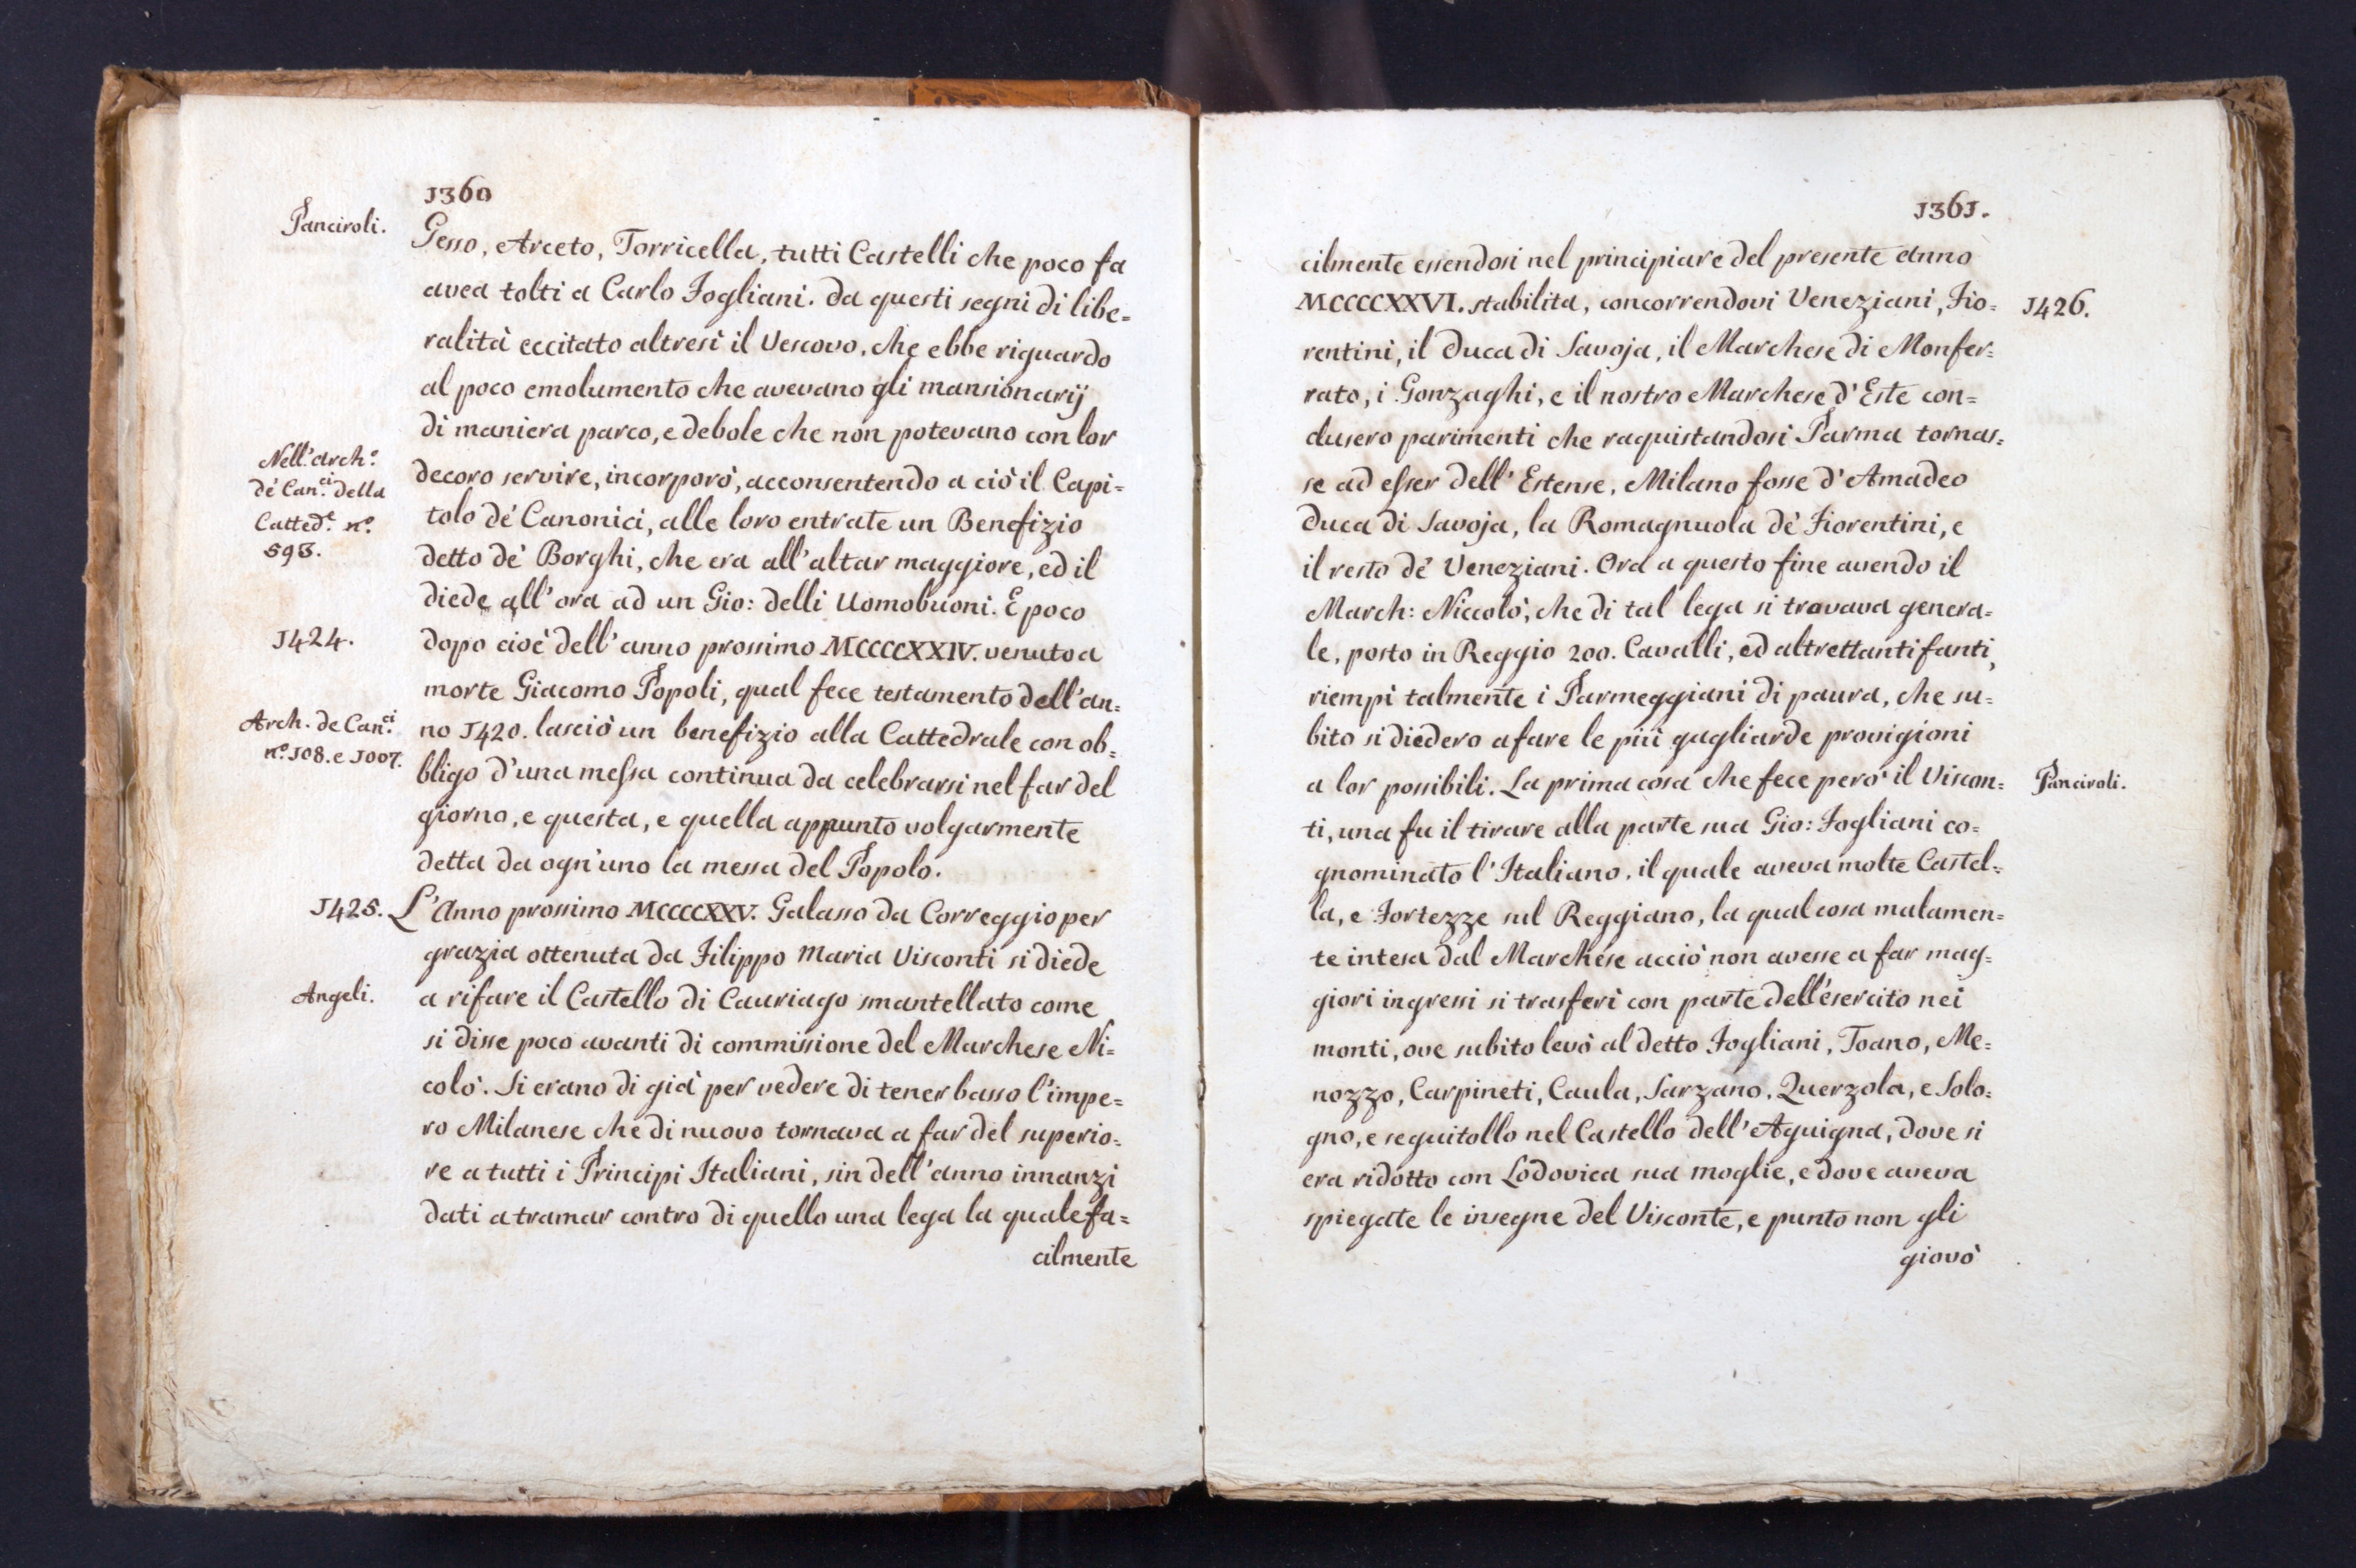 1360
Panciroli.
Gesso, Arceto, Torricella, tutti Castelli che poco fa
avea tolti a Carlo Fogliani. Da questi segni di libe=
ralità eccitato altresì il Vescovo, che ebbe riguardo
al poco emolumento che avevano gli mansionarij
di maniera parco, e debole che non potevano con lor
Nell'Arch.º
de' Can.ci della
Catted.e nº.
593.
decoro servire, incorporò, acconsentendo a ciò il Capi=
tolo de' Canonici, alle loro entrate un Benefizio
detto de' Borghi, che era all'altar maggiore, ed il
diede all'ora ad un Gio: delli Uomobuoni. E poco
1424.
dopo cioè dell'anno prossimo MCCCCXXIV. venuto a
morte Giacomo Popoli, qual fece testamento dell'an=
Arch. de Can.ci
nº. 108. e 1007.
no 1420. lasciò un benefizio alla Cattedrale con ob=
bligo d'una messa continua da celebrarsi nel far del
giorno, e questa, e quella appunto volgarmente
detta da ogn'uno la messa del Popolo.
1425.
L'Anno prossimo MCCCCXXV. Galasso da Correggio per
grazia ottenuta da Filippo Maria Visconti si diede
Angeli.
a rifare il Castello di Cauriago smantellato come
si disse poco avanti di commissione del Marchese Ni=
colò. Si erano di già per vedere di tener basso l'impe=
ro Milanese che di nuovo tornava a far del superio=
re a tutti i Principi Italiani, sin dell'anno innanzi
dati a tramar contro di quello una lega la quale fa=
cilmente
1361.
cilmente essendosi nel principiare del presente Anno
MCCCCXXVI. stabilita, concorrendovi Veneziani, Fio=
1426.
rentini, il Duca di Savoja, il Marchese di Monfer=
rato, i Gonzaghi, e il nostro Marchese d'Este con=
clusero parimenti che raquistandosi Parma tornas=
se ad esser dell'Estense, Milano fosse d'Amadeo
Duca di Savoja, la Romagnuola de' Fiorentini, e
il resto de' Veneziani. Ora a questo fine avendo il
March: Niccolò, che di tal lega si trovava genera=
le, posto in Reggio 200. Cavalli, ed altrettanti fanti,
riempì talmente i Parmeggiani di paura, che su=
bito si diedero a fare le più gagliarde provigioni
a lor possibili. La prima cosa che fece però il Viscon=
Panciroli.
ti, una fu il tirare alla parte sua Gio: Fogliani co=
gnominato l'Italiano, il quale aveva molte Castel=
la, e Fortezze sul Reggiano, la qual cosa malamen=
te intesa dal Marchese acciò non avesse a far mag=
giori ingressi si trasferì con parte dell'esercito nei
monti, ove subito levò al detto Fogliani, Toano, Me=
nozzo, Carpineti, Caula, Sarzano, Querzola, e Solo=
gno, e seguitollo nel Castello dell'Aguigna, dove si
era ridotto con Lodovica sua moglie, e dove aveva
spiegate le insegne del Visconte, e punto non gli
giovò